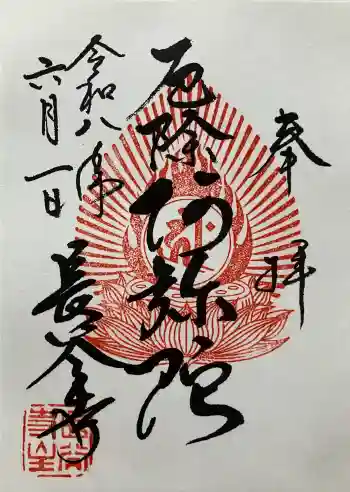 奉拝
厄除阿弥陀
令和八年
六月一日
長谷寺